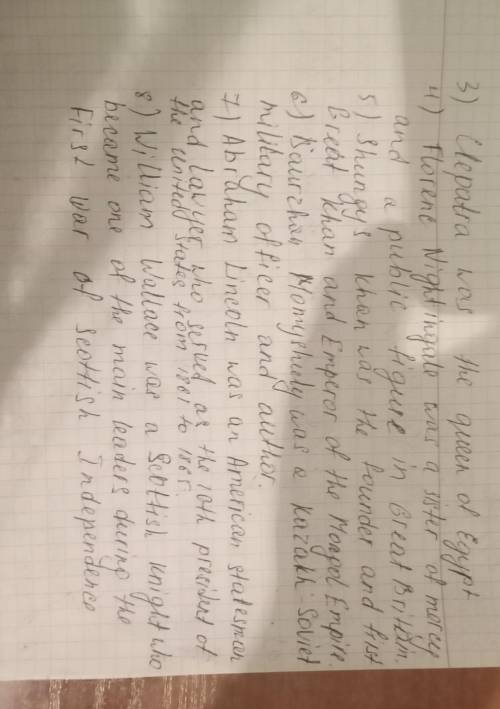 3) Cleopatra was the queen of Egypt
4) Florene Nightingale was a sister of mercy
and a public figure in Great Britain.
5) Shyngys khan was the founder and first
Great khan and Emperor of the Mongol Empire.
6) Baurzhan Momyshuly was a Kazakh-Soviet
military officer and author.
7) Abraham Lincoln was an American statesman
and lawyer who served as the 16th president of
the united States from 1861 to 1865.
8) William Wallace was a Scottish knight who
became one of the main leaders during the
First War of Scottish Independence